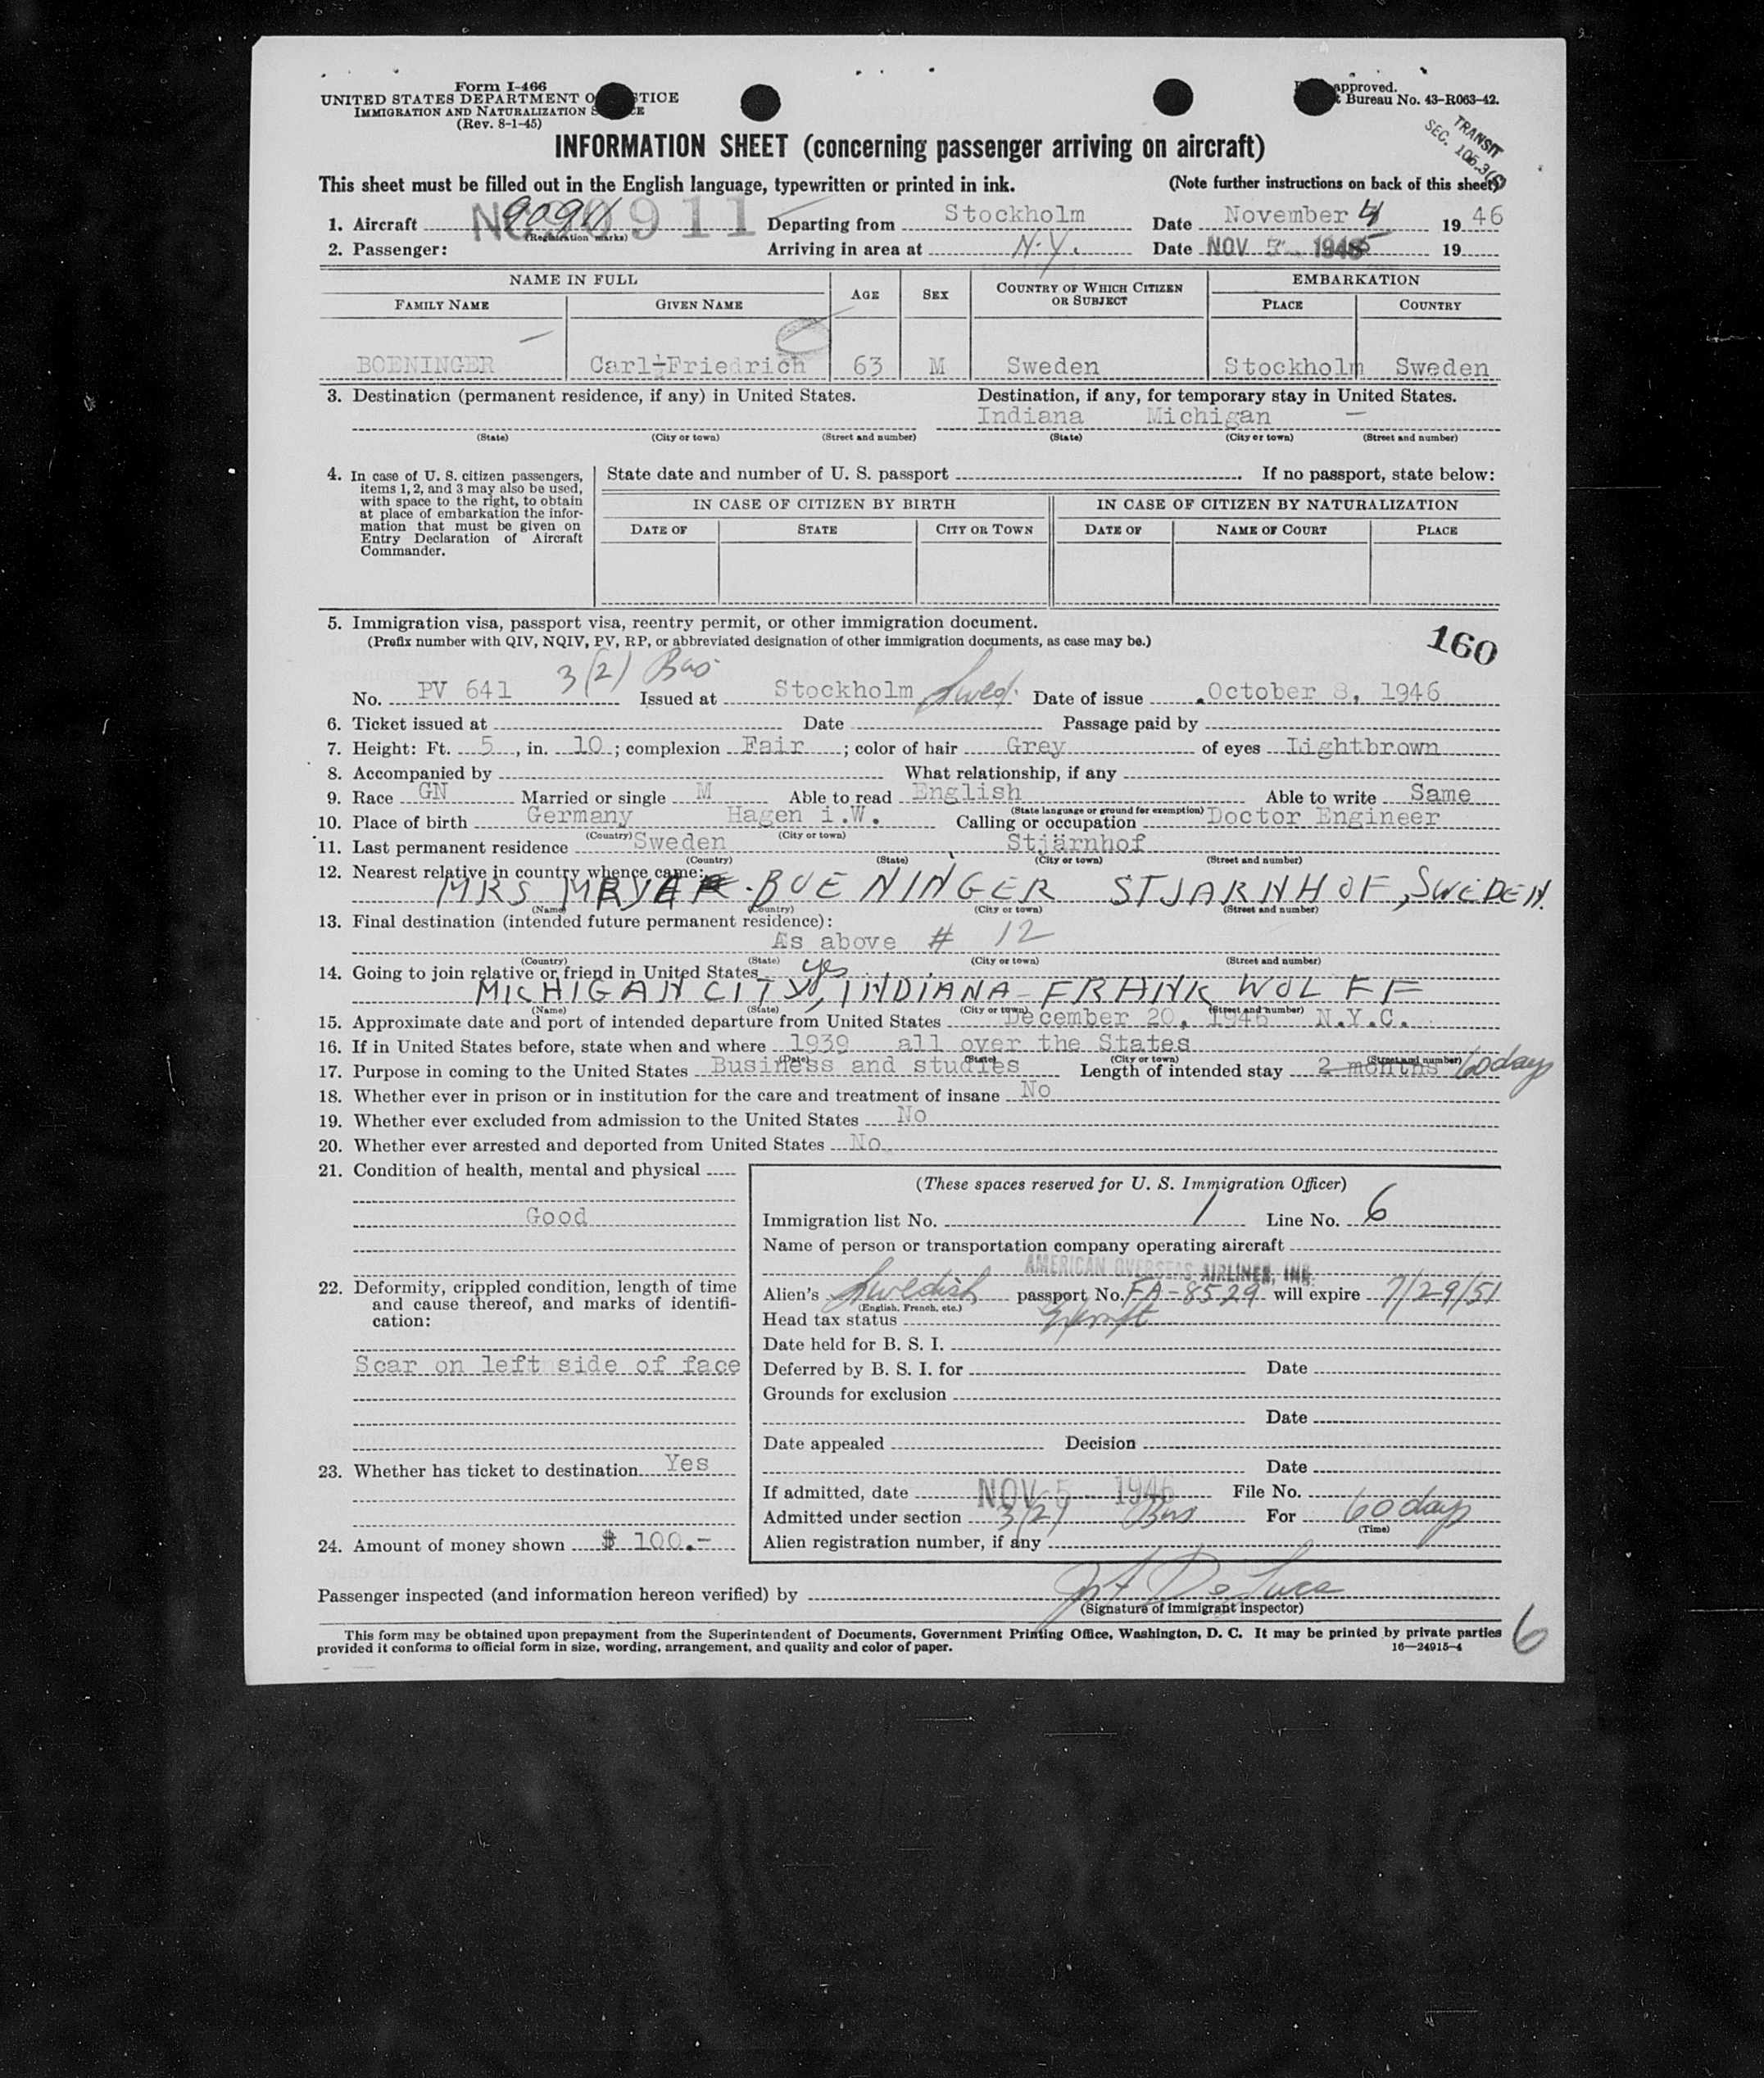 Form I-466
UNITED STATES DEPARTMENT O TICE
IMMIGRATION AND NATURALIZATION S E
(Rev. 8-1-45)
approved.
Bureau No. 43-R063-42.
TRANSIT
SEC. 105.3(
INFORMATION SHEET (concerning passenger arriving on aircraft)
This sheet must be filled out in the English language, typewritten or printed in ink. (Note further instructions on back of this sheet)
1. Aircraft 90911 Departing from Stockholm Date November 4 1946
(Registration marks)
2. Passenger: Arriving in area at N.Y. Date NOV 5 19
NAME IN FULL AGE SEX COUNTRY OF WHICH CITIZEN OR SUBJECT EMBARKATION
FAMILY NAME GIVEN NAME PLACE COUNTRY
BOENINGER Carl-Friedrich 63 M Sweden Stockholm Sweden
3. Destination (permanent residence, if any) in United States. Destination, if any, for temporary stay in United States.
Indiana Michigan —
(State) (City or town) (Street and number) (State) (City or town) (Street and number)
4. In case of U. S. citizen passengers, items 1, 2, and 3 may also be used, with space to the right, to obtain at place of embarkation the information that must be given on Entry Declaration of Aircraft Commander.
State date and number of U. S. passport If no passport, state below:
IN CASE OF CITIZEN BY BIRTH IN CASE OF CITIZEN BY NATURALIZATION
DATE OF STATE CITY OR TOWN DATE OF NAME OF COURT PLACE
5. Immigration visa, passport visa, reentry permit, or other immigration document.
(Prefix number with QIV, NQIV, PV, RP, or abbreviated designation of other immigration documents, as case may be.)
160
3(2) Bus
No. PV 641 Issued at Stockholm Swed. Date of issue October 8, 1946
6. Ticket issued at Date Passage paid by
7. Height: Ft. 5, in. 10; complexion Fair; color of hair Grey of eyes Lightbrown
8. Accompanied by What relationship, if any
9. Race GN Married or single M Able to read English Able to write Same
(State language or ground for exemption)
10. Place of birth Germany Hagen i.W. Calling or occupation Doctor Engineer
(Country) (City or town)
11. Last permanent residence Sweden Stjärnhof
(Country) (State) (City or town) (Street and number)
12. Nearest relative in country whence came:
MRS MARYA BOENINGER STJARNHOF, SWEDEN.
(Name) (Country) (City or town) (Street and number)
13. Final destination (intended future permanent residence):
As above # 12
(Country) (State) (City or town) (Street and number)
14. Going to join relative or friend in United States yes
MICHIGAN CITY, INDIANA - FRANK WOLFF
(Name) (State) (City or town) (Street and number)
15. Approximate date and port of intended departure from United States December 20, 1946 N.Y.C.
16. If in United States before, state when and where 1939 all over the States
(Date) (State) (City or town) (Street and number)
17. Purpose in coming to the United States Business and studies Length of intended stay 2 months 60 days
18. Whether ever in prison or in institution for the care and treatment of insane No
19. Whether ever excluded from admission to the United States No
20. Whether ever arrested and deported from United States No
21. Condition of health, mental and physical
Good
22. Deformity, crippled condition, length of time and cause thereof, and marks of identification:
Scar on left side of face
23. Whether has ticket to destination Yes
24. Amount of money shown $ 100.-
(These spaces reserved for U. S. Immigration Officer)
Immigration list No. 1 Line No. 6
Name of person or transportation company operating aircraft
AMERICAN OVERSEAS AIRLINES, INC.
Alien's Swedish passport No. FA-8529 will expire 7/29/51
(English, French, etc.)
Head tax status Exempt
Date held for B. S. I.
Deferred by B. S. I. for Date
Grounds for exclusion
Date
Date appealed Decision
Date
If admitted, date NOV 5 - 1946 File No.
Admitted under section 3(2) Bus For 60 days
(Time)
Alien registration number, if any
Passenger inspected (and information hereon verified) by De Luca
(Signature of immigrant inspector)
This form may be obtained upon prepayment from the Superintendent of Documents, Government Printing Office, Washington, D. C. It may be printed by private parties
provided it conforms to official form in size, wording, arrangement, and quality and color of paper. 16—24915-4
6